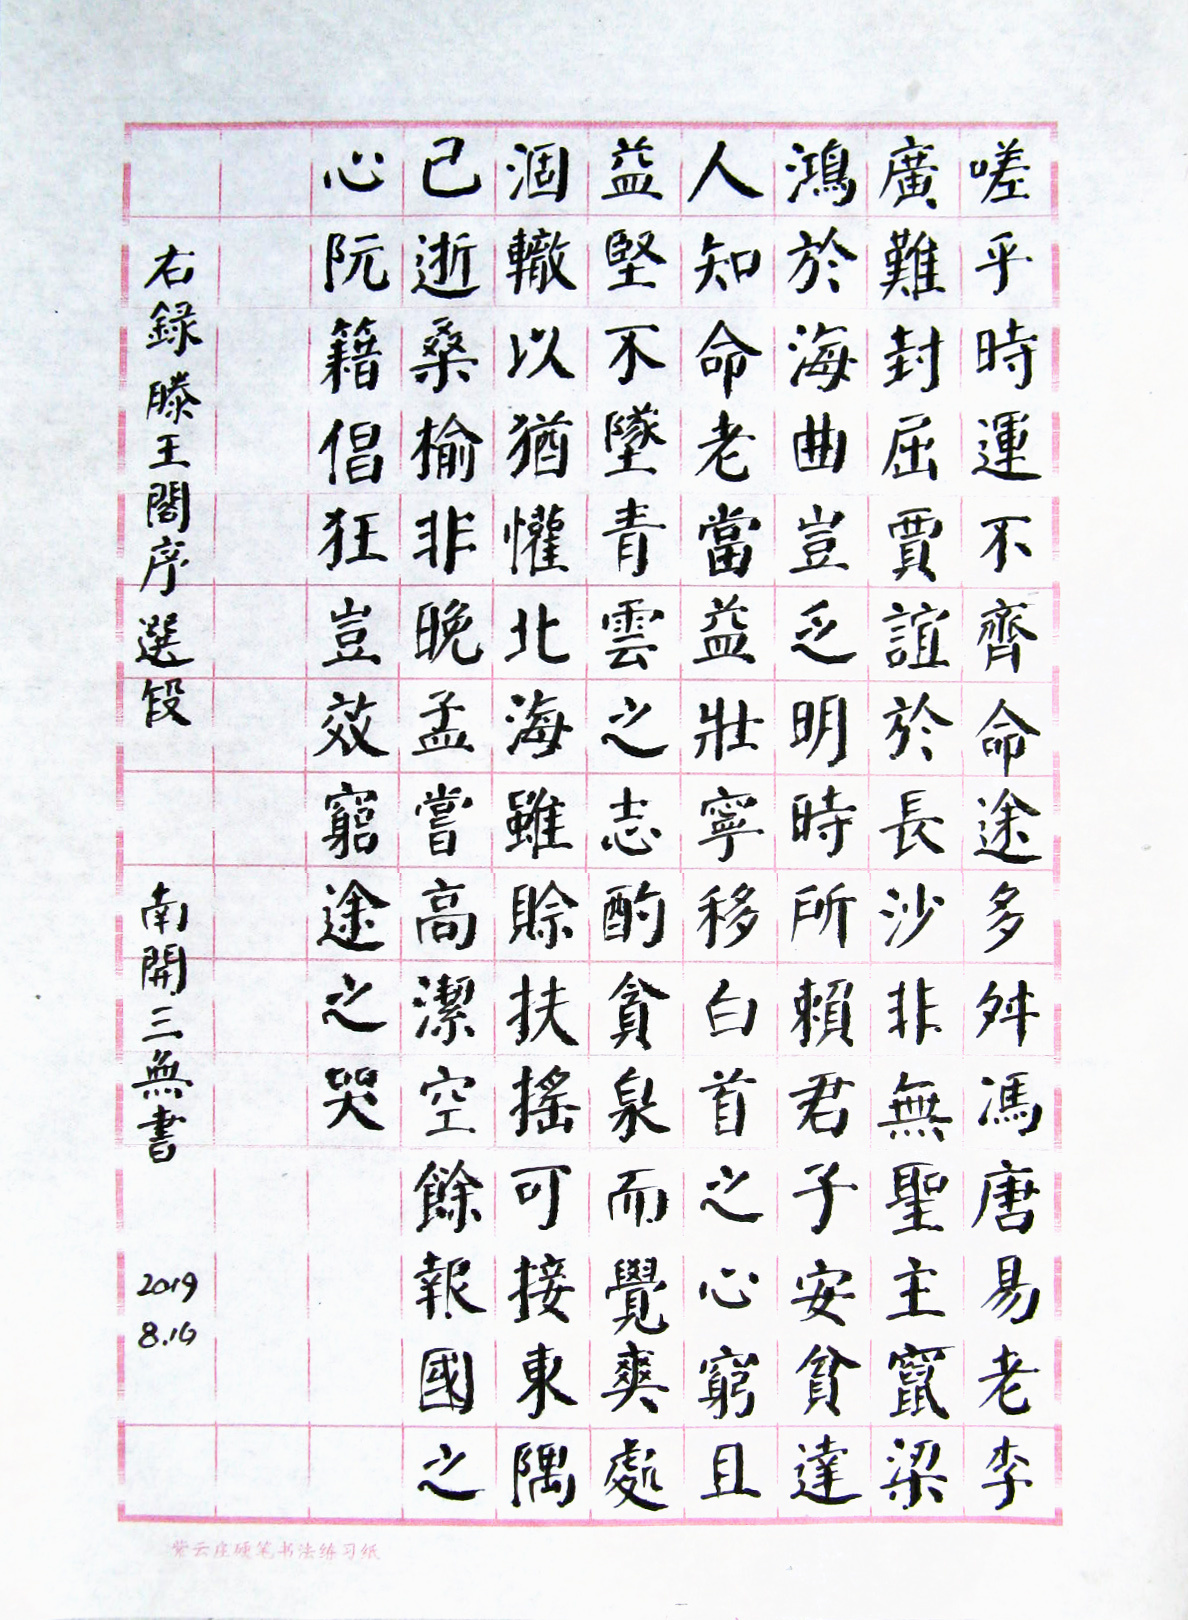 嗟乎時運不齊命途多舛馮唐易老李
廣難封屈賈誼於長沙非無聖主竄梁
鴻於海曲豈乏明時所賴君子安貧達
人知命老當益壯寧移白首之心窮且
益堅不墜青雲之志酌貪泉而覺爽處
涸轍以猶懽北海雖賒扶搖可接東隅
已逝桑榆非晚孟嘗高潔空餘報國之
心阮籍倡狂豈效窮途之哭
右錄滕王閣序選段 南開三無書 2019 8.16
紫云庄硬笔书法练习纸